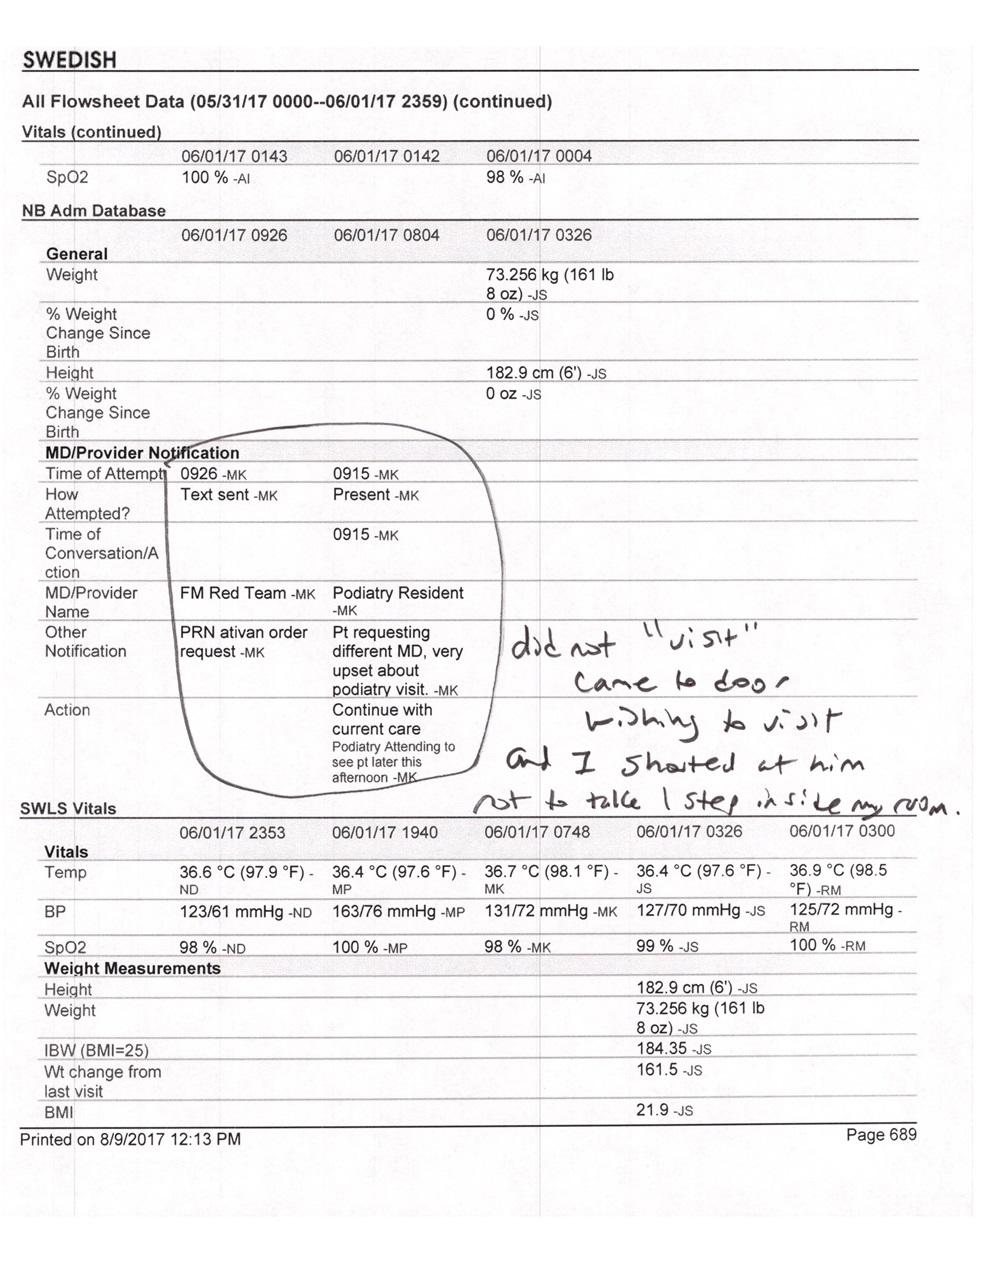 SWEDISH
All Flowsheet Data (05/31/17 0000--06/01/17 2359) (continued)
Vitals (continued)
06/01/17 0143 06/01/17 0142 06/01/17 0004
SpO2 100 % -AI 98 % -AI
NB Adm Database
06/01/17 0926 06/01/17 0804 06/01/17 0326
General
Weight 73.256 kg (161 lb
8 oz) -JS
% Weight 0 % -JS
Change Since
Birth
Height 182.9 cm (6') -JS
% Weight 0 oz -JS
Change Since
Birth
MD/Provider Notification
Time of Attempt 0926 -MK 0915 -MK
How Text sent -MK Present -MK
Attempted?
Time of 0915 -MK
Conversation/A
ction
MD/Provider FM Red Team -MK Podiatry Resident
Name -MK
Other PRN ativan order Pt requesting
Notification request -MK different MD, very
upset about
podiatry visit. -MK
Action Continue with
current care
Podiatry Attending to
see pt later this
afternoon -MK
did not "visit"
came to door
wishing to visit
and I shouted at him
not to take 1 step inside my room.
SWLS Vitals
06/01/17 2353 06/01/17 1940 06/01/17 0748 06/01/17 0326 06/01/17 0300
Vitals
Temp 36.6 °C (97.9 °F) - 36.4 °C (97.6 °F) - 36.7 °C (98.1 °F) - 36.4 °C (97.6 °F) - 36.9 °C (98.5
ND MP MK JS °F) -RM
BP 123/61 mmHg -ND 163/76 mmHg -MP 131/72 mmHg -MK 127/70 mmHg -JS 125/72 mmHg -
RM
SpO2 98 % -ND 100 % -MP 98 % -MK 99 % -JS 100 % -RM
Weight Measurements
Height 182.9 cm (6') -JS
Weight 73.256 kg (161 lb
8 oz) -JS
IBW (BMI=25) 184.35 -JS
Wt change from 161.5 -JS
last visit
BMI 21.9 -JS
Printed on 8/9/2017 12:13 PM Page 689